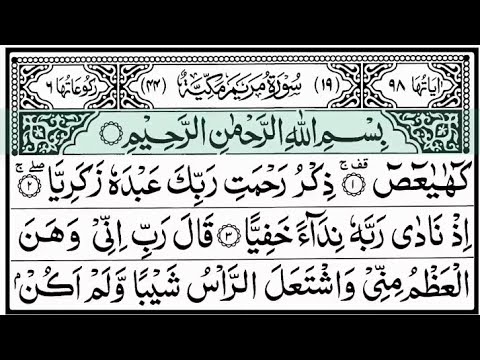 اٰیاتُهَا ۹۸ (۱۹) سُوْرَةُ مَرْیَمَ مَكِّیَّةٌ (۴۴) رُكُوْعَاتُهَا ۶
بِسْمِ اللّٰهِ الرَّحْمٰنِ الرَّحِیْمِ
كٓهٰیٰعٓصٓ ۚۖ ۱ ذِكْرُ رَحْمَتِ رَبِّكَ عَبْدَهٗ زَكَرِیَّا ۖۚ ۲
اِذْ نَادٰی رَبَّهٗ نِدَآءً خَفِیًّا ۳ قَالَ رَبِّ اِنِّیْ وَهَنَ
الْعَظْمُ مِنِّیْ وَاشْتَعَلَ الرَّاْسُ شَیْبًا وَّلَمْ اَكُنْۢ